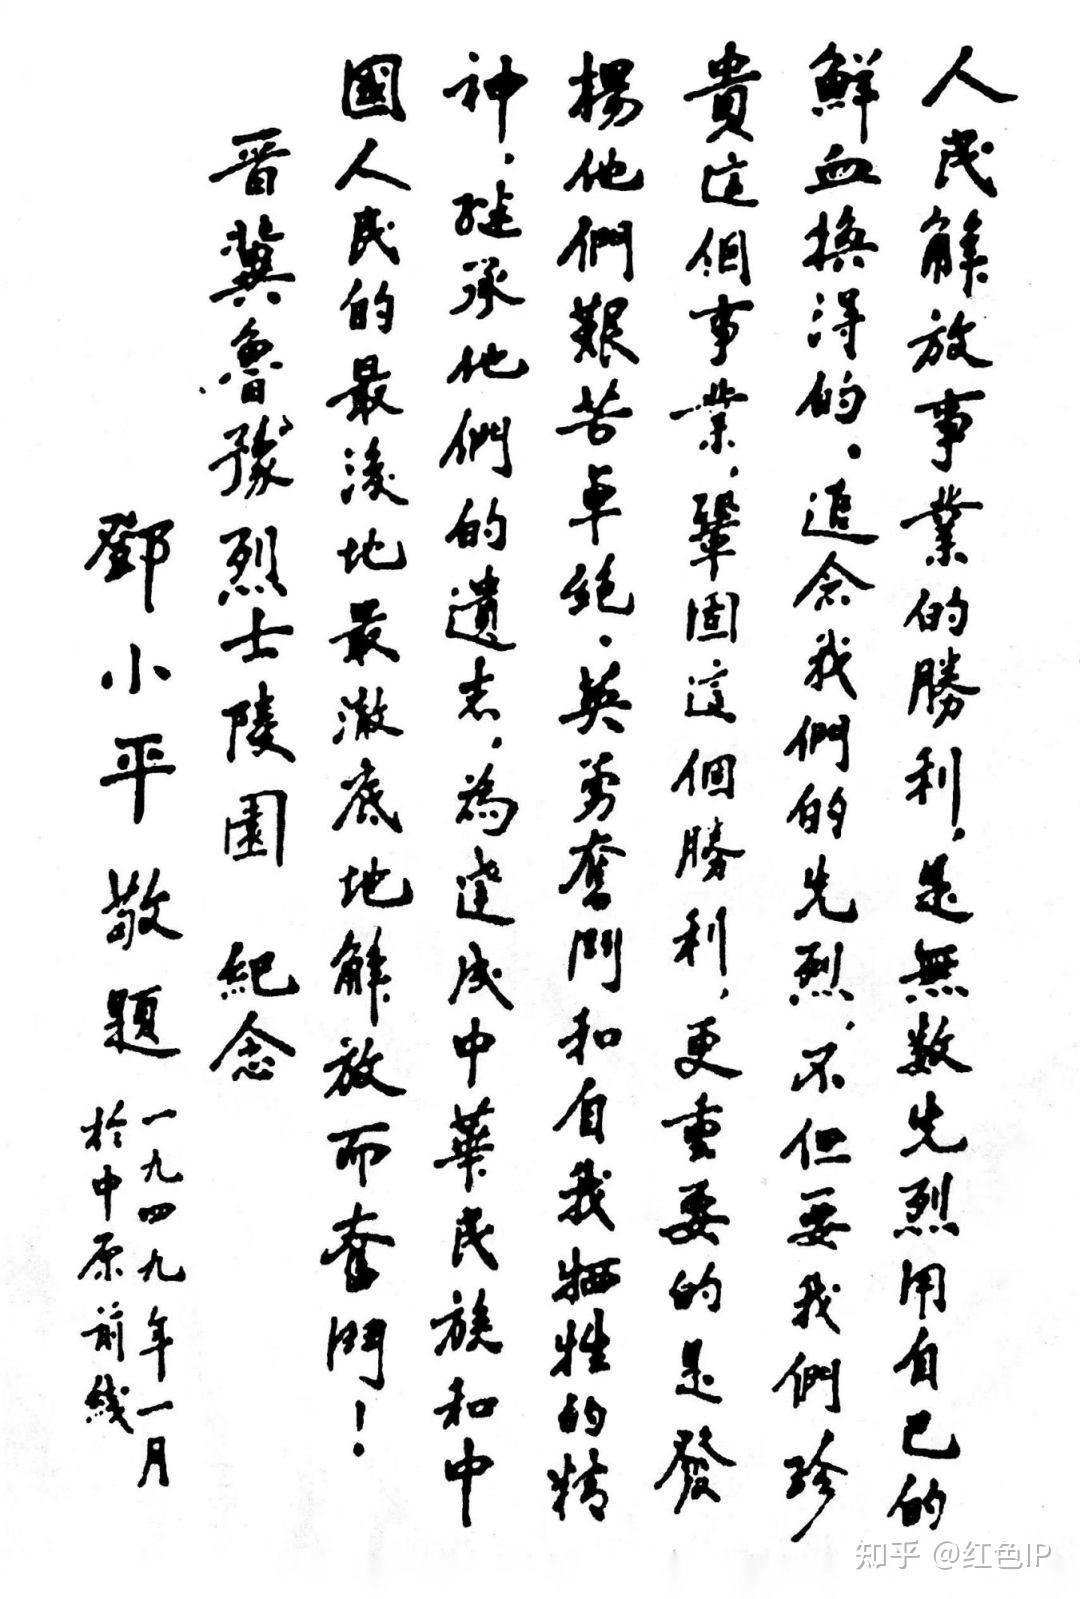 人民解放事業的勝利，是無数先烈用自己的
鮮血換得的。追念我們的先烈，不但要我們珍
貴這個事業，鞏固這個勝利，更重要的是發
揚他們艱苦卓絕，英勇奮鬥和自我牺牲的精
神，继承他們的遺志，為達成中華民族和中
國人民的最後地最澈底地解放而奮鬥！
晋冀魯豫烈士陵園 紀念
鄧小平敬題
一九四九年一月
於中原前线
知乎 @红色IP